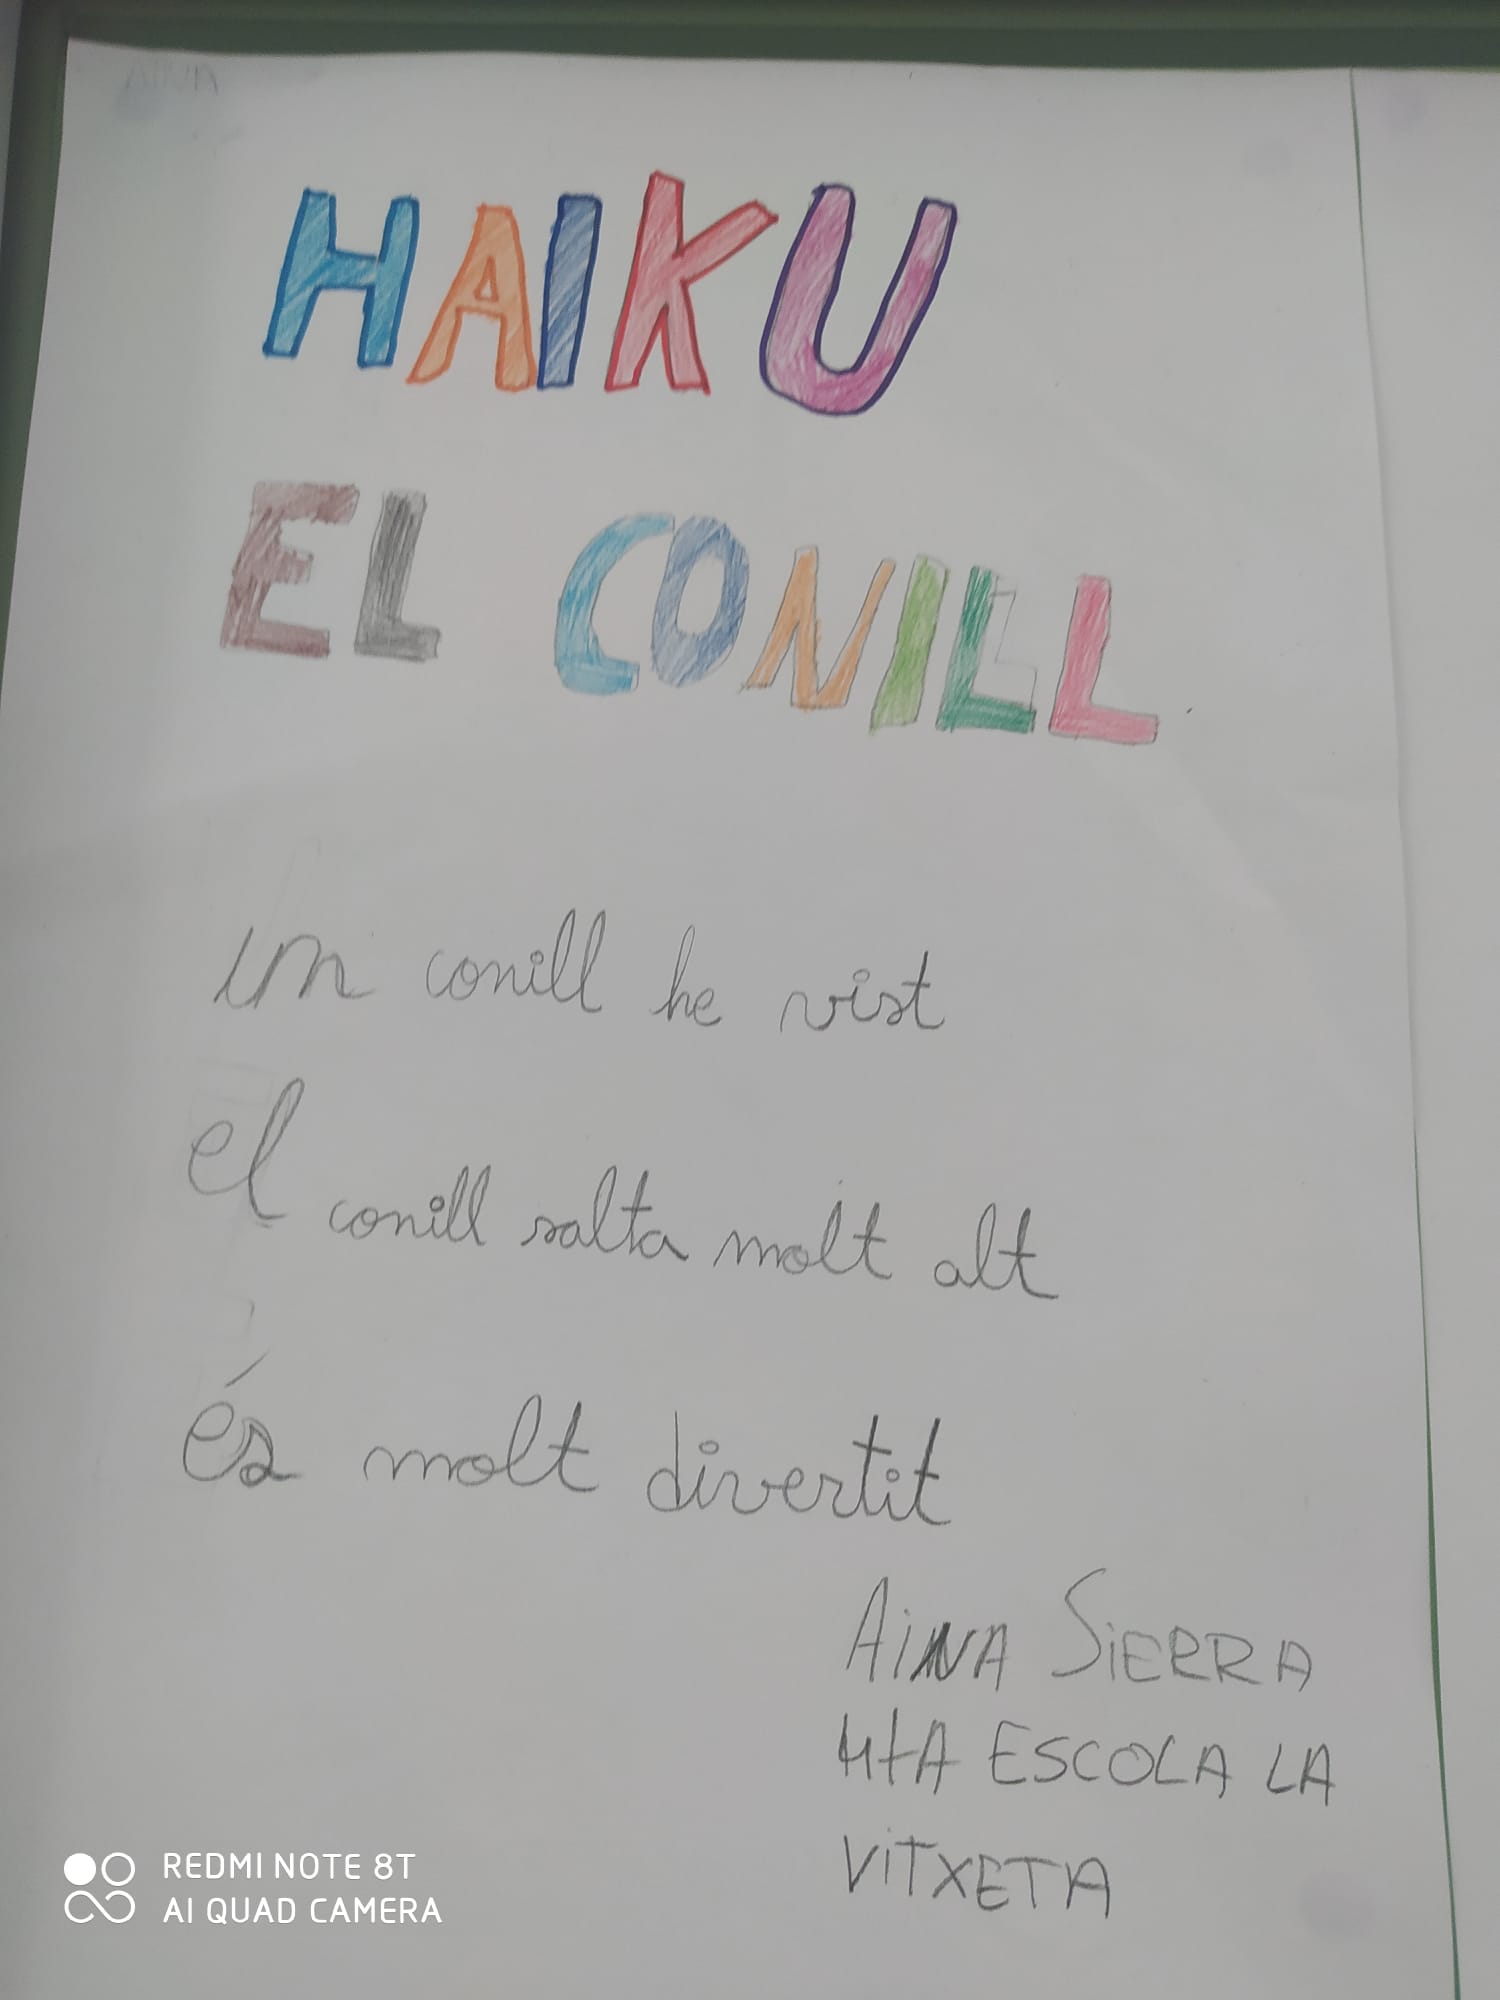 AINA
HAIKU
EL CONILL
un conill he vist
el conill salta molt alt
és molt divertit
AiNA SiERRA
4tA ESCOLA LA
ViTXETA
REDMI NOTE 8T
AI QUAD CAMERA